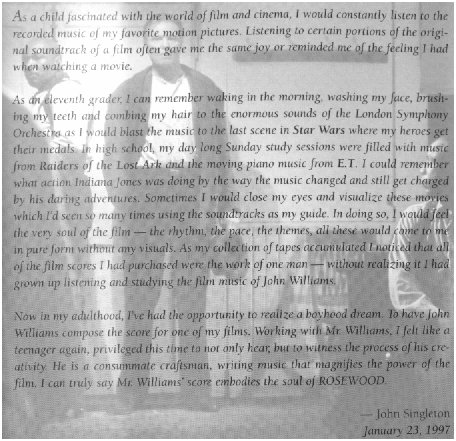 As a child fascinated with the world of film and cinema, I would constantly listen to the
recorded music of my favorite motion pictures. Listening to certain portions of the origi-
nal soundtrack of a film often gave me the same joy or reminded me of the feeling I had
when watching a movie.
As an eleventh grader, I can remember waking in the morning, washing my face, brush-
ing my teeth and combing my hair to the enormous sounds of the London Symphony
Orchestra as I would blast the music to the last scene in Star Wars where my heroes get
their medals. In high school, my day long Sunday study sessions were filled with music
from Raiders of the Lost Ark and the moving piano music from E.T. I could remember
what action Indiana Jones was doing by the way the music changed and still get charged
by his daring adventures. Sometimes I would close my eyes and visualize these movies
which I'd seen so many times using the soundtracks as my guide. In doing so, I would feel
the very soul of the film — the rhythm, the pace, the themes, all these would come to me
in pure form without any visuals. As my collection of tapes accumulated I noticed that all
of the film scores I had purchased were the work of one man — without realizing it I had
grown up listening and studying the film music of John Williams.
Now in my adulthood, I've had the opportunity to realize a boyhood dream. To have John
Williams compose the score for one of my films. Working with Mr. Williams, I felt like a
teenager again, privileged this time to not only hear, but to witness the process of his cre-
ativity. He is a consummate craftsman, writing music that magnifies the power of the
film. I can truly say Mr. Williams' score embodies the soul of ROSEWOOD.
— John Singleton
January 23, 1997